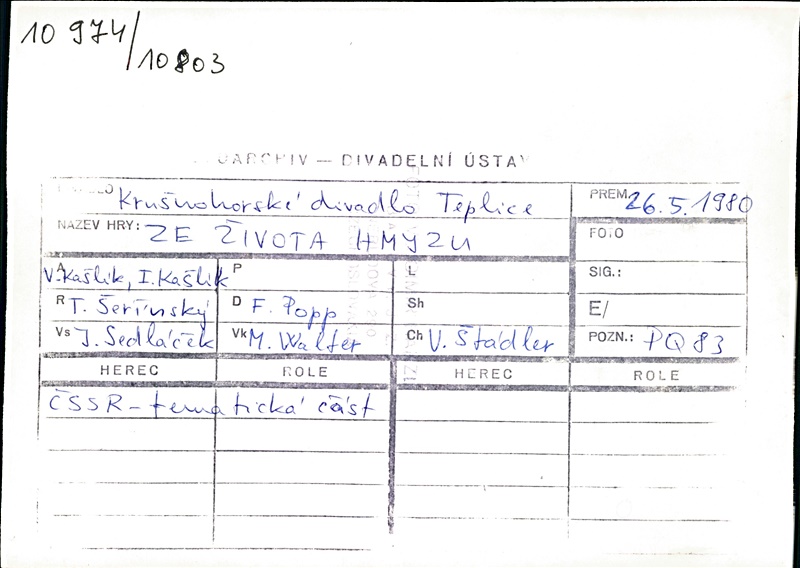 10 974/10803
DIVADELNÍ ÚSTAV
Krušnohorské divadlo Teplice PREM. 26.5.1980
NÁZEV HRY: ZE ŽIVOTA HMYZU FOTO
A V. Kašlík, I. Kašlík P L SIG.:
R T. Šeřínský D F. Popp Sh E/
Vs J. Sedláček Vk M. Walter Ch V. Štádler POZN.: PQ 83
HEREC ROLE HEREC ROLE
ČSSR - tematická část